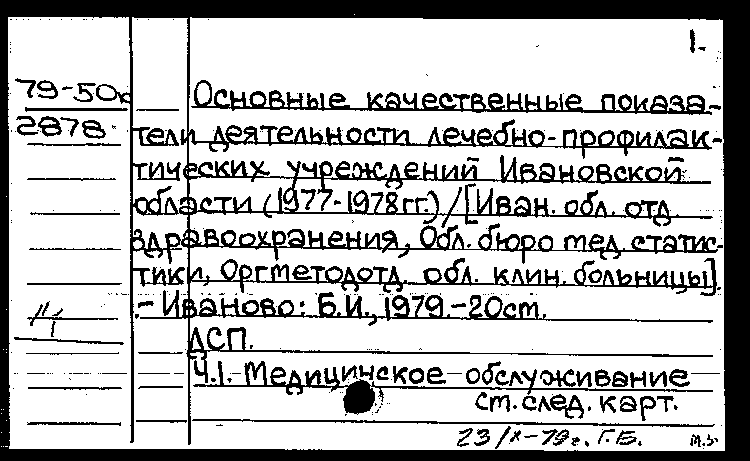 1.
79-50к
2878
Основные качественные показа-
тели деятельности лечебно-профилак-
тических учреждений Ивановской
области (1977-1978гг.)/[Иван. обл. отд.
здравоохранения, Обл. бюро мед. статис-
тики, Оргметодотд. обл. клин. больницы].
.- Иваново: Б.И., 1979.-20 ст.
ДСП.
Ч.1. Медицинское обслуживание
ст. след. карт.
23/X-79г. Г.Б.